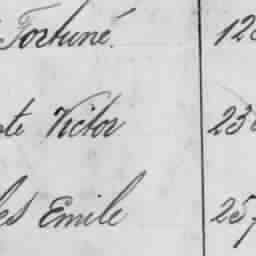 Fortuné. 12
te Victor 23
les Emile 257